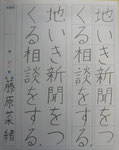 地いき新聞をつ
くる相談をする
地いき新聞をつ
くる相談をする
藤原菜緒